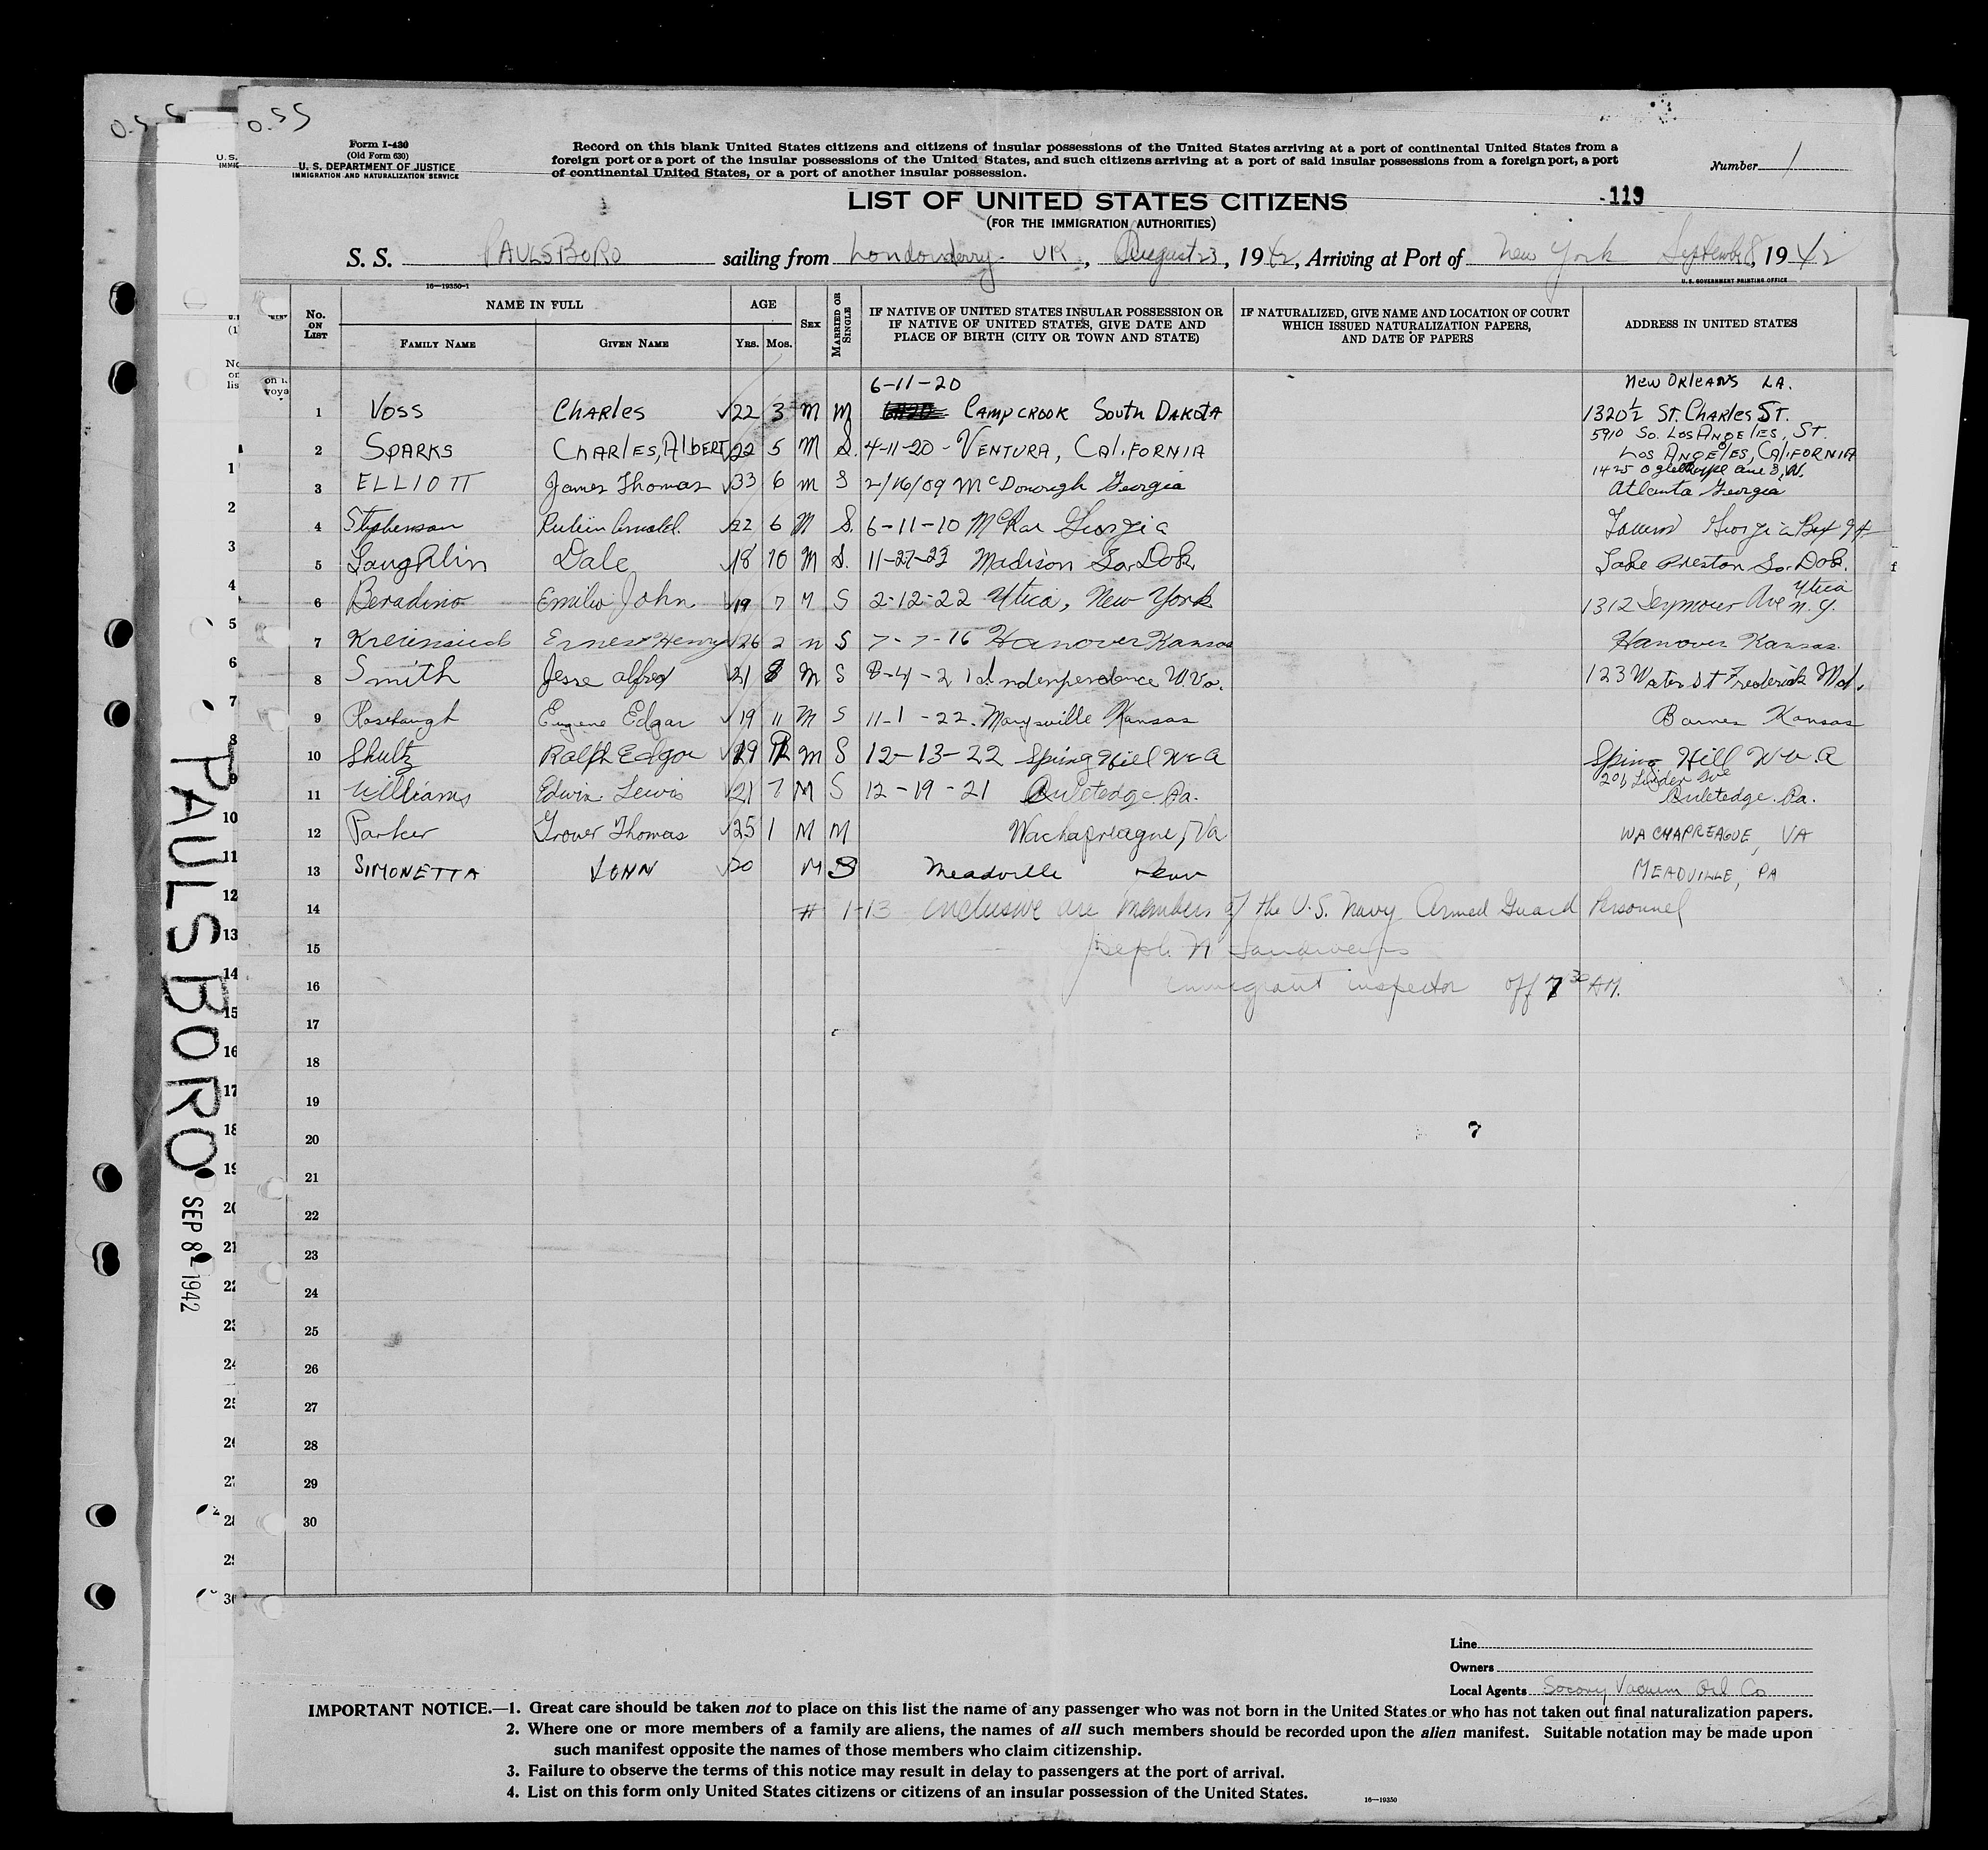 O.S.S
O.SS
Form I-430
(Old Form 630)
U. S. DEPARTMENT OF JUSTICE
IMMIGRATION AND NATURALIZATION SERVICE
Record on this blank United States citizens and citizens of insular possessions of the United States arriving at a port of continental United States from a
foreign port or a port of the insular possessions of the United States, and such citizens arriving at a port of said insular possessions from a foreign port, a port
of continental United States, or a port of another insular possession.
Number 1
LIST OF UNITED STATES CITIZENS
(FOR THE IMMIGRATION AUTHORITIES)
-119
S. S. PAULSBORO sailing from Londonderry UK, August 23, 1942, Arriving at Port of New York September 8, 1942
16—19350-1
U. S. GOVERNMENT PRINTING OFFICE
No. ON LIST
NAME IN FULL
FAMILY NAME
GIVEN NAME
AGE
YRS.
MOS.
SEX
MARRIED OR SINGLE
IF NATIVE OF UNITED STATES INSULAR POSSESSION OR
IF NATIVE OF UNITED STATES, GIVE DATE AND
PLACE OF BIRTH (CITY OR TOWN AND STATE)
IF NATURALIZED, GIVE NAME AND LOCATION OF COURT
WHICH ISSUED NATURALIZATION PAPERS,
AND DATE OF PAPERS
ADDRESS IN UNITED STATES
6-11-20 New Orleans LA.
1 Voss Charles 22 3 M M Camp Crook South Dakota 1320½ St. Charles St.
5910 So. Los Angeles, St.
2 Sparks Charles, Albert 22 5 M S. 4-11-20 - Ventura, California Los Angeles, California
1425 Oglethorpe ave S.W.
3 ELLIOTT James Thomas 33 6 M S 2/16/09 McDonough Georgia Atlanta Georgia
4 Stephenson 22 6 M S. 6-11-10 McRae Georgia Georgia Box 94
5 Laughlin Dale 18 10 M S. 11-27-23 Madison So. Dak. Lake Preston So. Dak.
6 Beradino Emilio John 19 7 M S 2-12-22 Utica, New York 1312 Seymour Ave Utica N.Y.
7 Ernest Henry 26 2 M S 7-7-16 Hanover Kansas Hanover Kansas.
8 Smith Jesse Alfred 21 8 M S 8-4-21 Independence W.Va. 123 Water St Frederick Md.
9 Eugene Edgar 19 11 M S 11-1-22. Marysville Kansas Barnes Kansas
10 Shultz Ralph Edgar 19 M S 12-13-22 Spring Hill W.VA Spring Hill W.V.A
206 Linden Ave
11 Williams Edwin Lewis 21 7 M S 12-19-21 Ruletedge Pa. Ruletedge. Pa.
12 Parker Grover Thomas 25 1 M M Wachapreague, Va WACHAPREAGUE, VA
13 SIMONETTA JOHN 20 M S Meadville Penn MEADVILLE, PA
14 # 1-13 inclusive are members of the U.S. Navy Armed Guard Personnel
15 Joseph N
16 Immigrant Inspector off 7 30 AM.
17
18
19
20
21
22
23
24
25
26
27
28
29
30
PAULSBORO
SEP 8 - 1942
Line
Owners
Local Agents Socony Vacuum Oil Co
IMPORTANT NOTICE.—1. Great care should be taken not to place on this list the name of any passenger who was not born in the United States or who has not taken out final naturalization papers.
2. Where one or more members of a family are aliens, the names of all such members should be recorded upon the alien manifest. Suitable notation may be made upon
such manifest opposite the names of those members who claim citizenship.
3. Failure to observe the terms of this notice may result in delay to passengers at the port of arrival.
4. List on this form only United States citizens or citizens of an insular possession of the United States.
16—19350